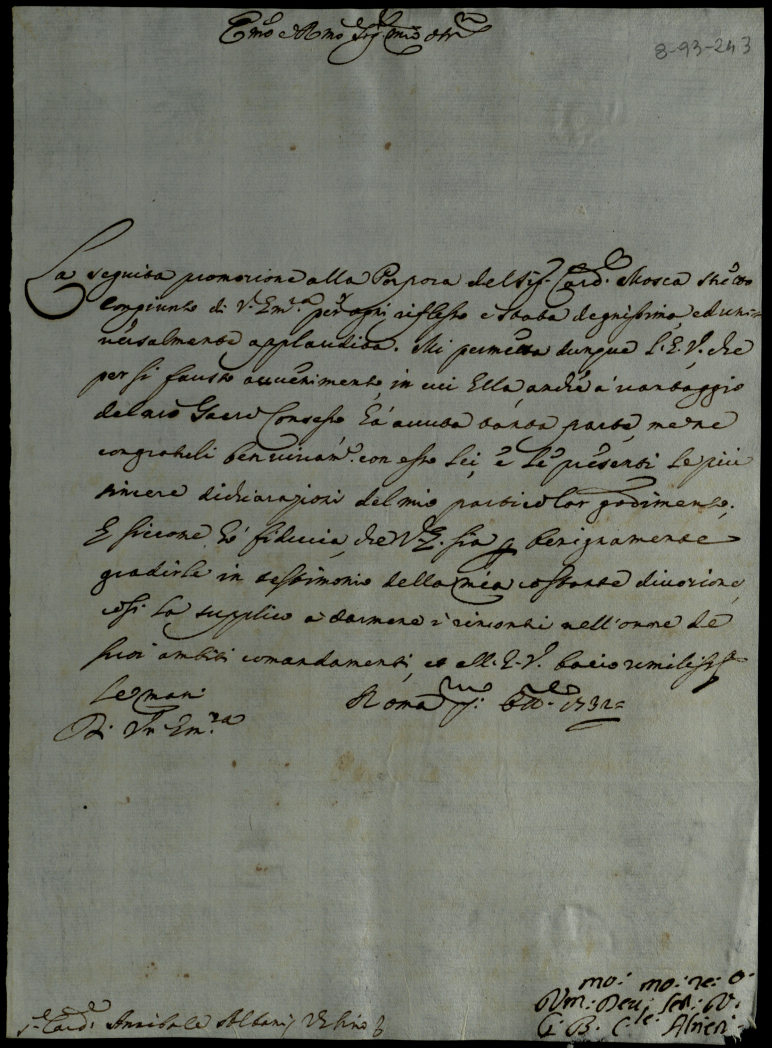 Emo e Rmo Sig. mio Oss.
8-93-243
La seguita promozione alla Porpora del Sig. Card. Mosca stretto
congiunto di V. Em.a per ogni riflesso è stata degnissima, ed uni-
versalmente applaudita. Mi permetta dunque l'E. V. che
per sì fausto avvenimento, in cui Ella, anche à vantaggio
del Sacro Consesso hà avuta tanta parte, me ne
congratuli con esso Lei, e Le presenti le più
sincere dichiarazioni del mio particolar godimento.
E siccome hò fiducia che V. E. sia p benignamente
gradirle in testimonio della mia costante divozione,
così la supplico a darmene i rincontri nell'onore de
suoi ambiti comandamenti, et all'E. V. bacio umiliss.te
le mani.
Roma 1732=
Di Vra Em.za
mo: mo: re: o:
Um: Dev: Ser: V.
G. B. C.le Alfieri
S.e Card. Annibale Albani Urbino